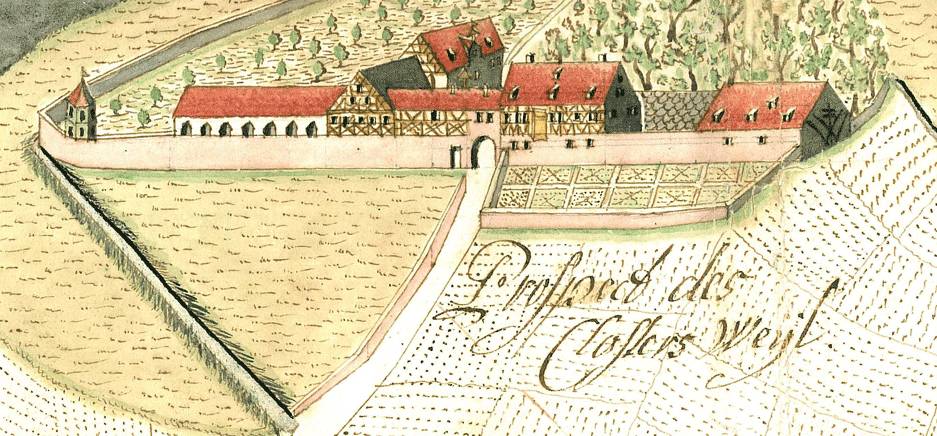 Prospect des
Closters Weyl.